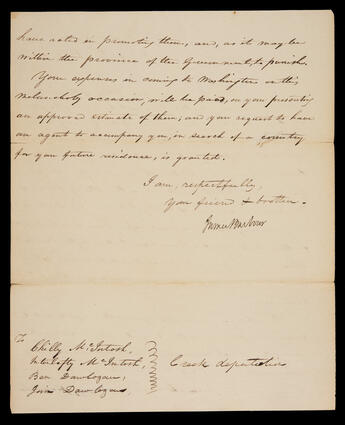 have acted in promoting them, and, as it may be
within the province of the Government, to punish.
Your expenses in coming to Washington on this
melancholy occasion, will be paid, on your presenting
an approved estimate of them; and you request to have
an agent to accompany you, in search of a country
for your future residence, is granted.
I am, respectfully,
Your friend & brother.
James Barbour
To
Chilly McIntosh,
Interlifty McIntosh,
Ben Dawlogan,
Join Dawlogans
Creek deputation